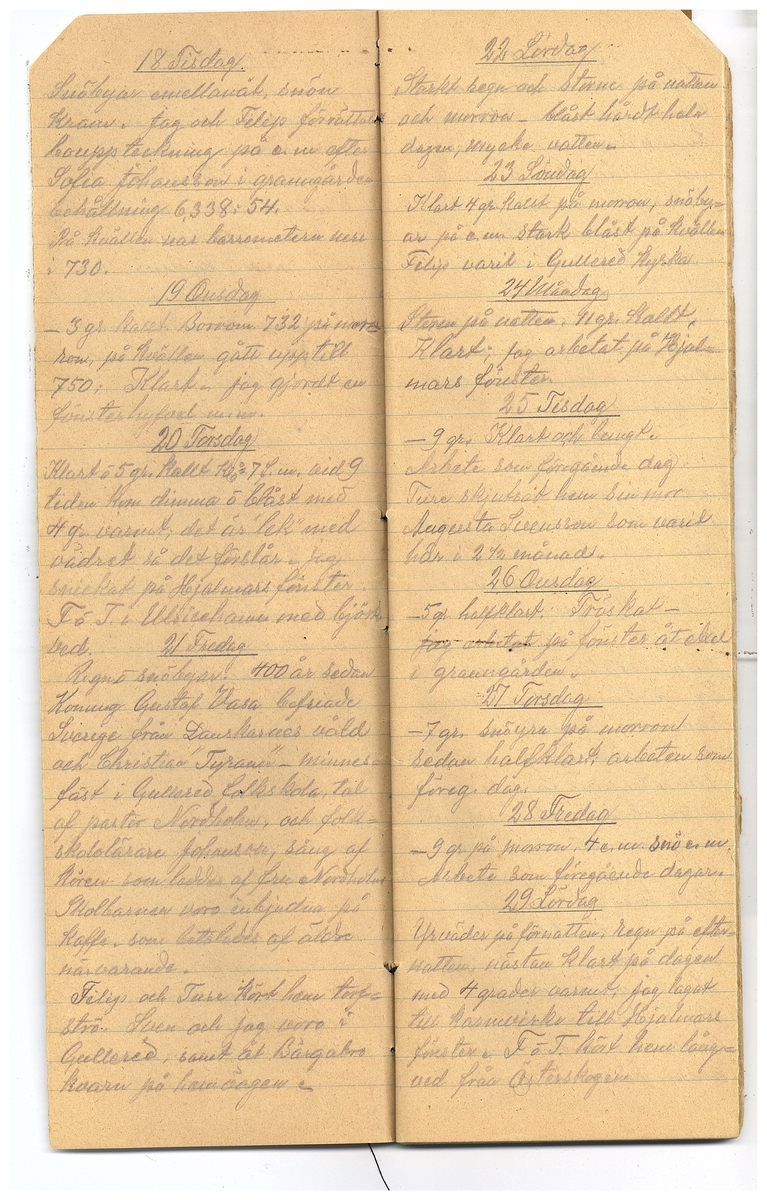 18 Tisdag.
Snöbyar emellanåt, snön
kram. Jag och Filip förrättat
bouppteckning på e.m efter
Sofia Johansson i granngården
behållning 6,338:54.
På kvällen var barrometern nere
i 730.
19 Onsdag
– 3 gr kallt Borrom 732 på mor-
ron, på kvällen gått upp till
750; Klart. jag gjordt en
fönsterhyfvel m.m.
20 Torsdag
Klart ō 5 gr. kallt kl. 7 f.m. vid 9
tiden kom dimma ō blåst med
4 gr. varmt; det är "lek" med
vädret så det förslår. Jag
snickat på Hjalmars fönster.
F ō T. i Ulricehamn med björk
ved.
21 Fredag
Regn ō snöbyar. 400 år sedan
Konung Gustaf Vasa befriade
Sverige från Danskarnes våld
och Christian "Tyrann" – minnes-
fäst i Gullered folkskola, tal
af pastor Nordholm, och folk-
skolelärare Johanson, sång af
kören som leddes af fru Nordholm
Skolbarnen voro inbjudna på
kaffe. som betalades af äldre
närvarande.
Filip och Ture kört hem torf-
strö. Sven och jag voro i
Gullered, samt åt Bärgabro
kvarn på hemvägen.
22 Lördag
Starkt regn och storm på natten
och morron – blåst hårdt hela
dagen, mycke vatten.
23 Söndag
Klart 4 gr. kallt på morron, snöby-
ar på e.m. stark blåst på kvällen
Filip varit i Gullered kyrka
24 Måndag
Storm på natten. 11 gr. kallt.
Klart; jag arbetat på Hjal-
mars fönster.
25 Tisdag
– 9 gr. Klart och lungt.
Arbete som föregående dag
Ture skjutsat hem sin mor
Augusta Svensson som varit
här i 2 ½ månad.
26 Onsdag
– 5 gr halfklart. Tröskat –
jag arbetat på fönster åt
i granngården.
27 Torsdag
– 7 gr. snöyra på morron
sedan halfklart; arbeten som
föreg. dag.
28 Fredag
– 9 gr. på morron. 4 e.m. snö e.m.
Arbete som föregående dagar.
29 Lördag
Urväder på förnatten, regn på efter-
natten, nästan klart på dagen
med 4 grader varmt; jag lagat
till karmvirke till Hjalmars
fönster. F ō T. kört hem lång-
ved från Österskogen